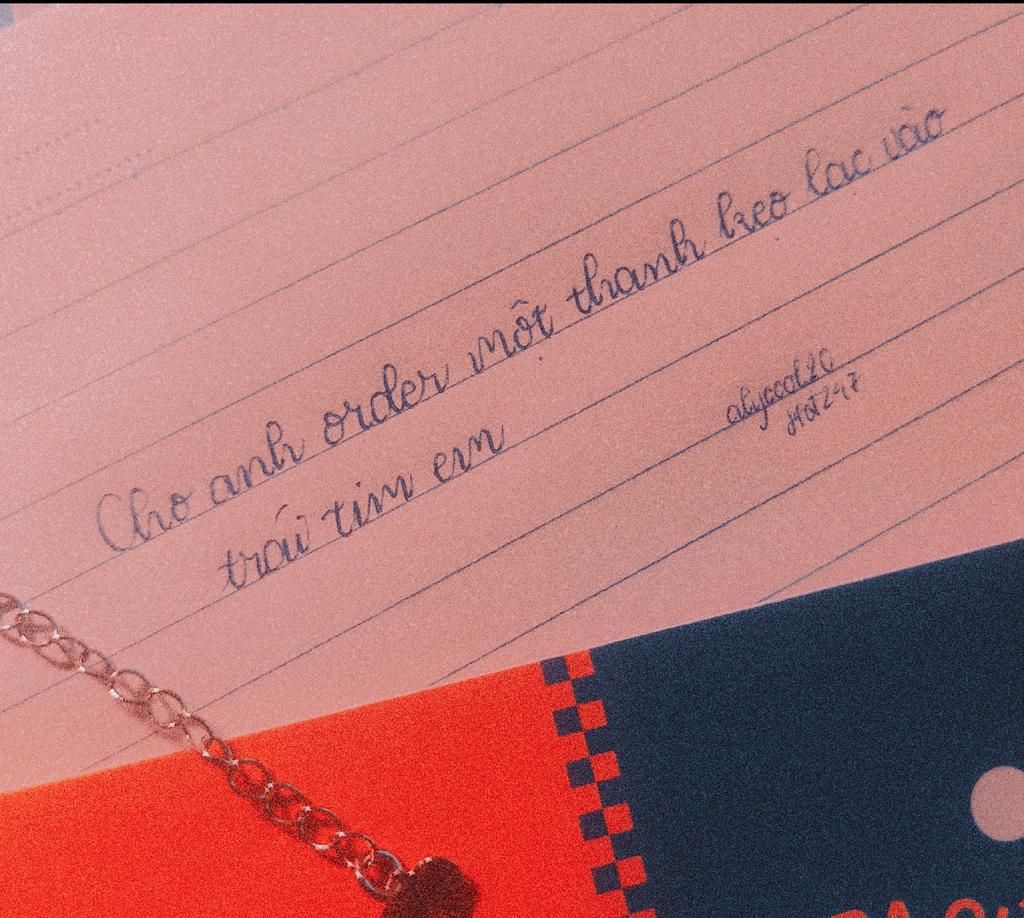 Cho anh order một thanh kẹo lạc vào
trái tim em